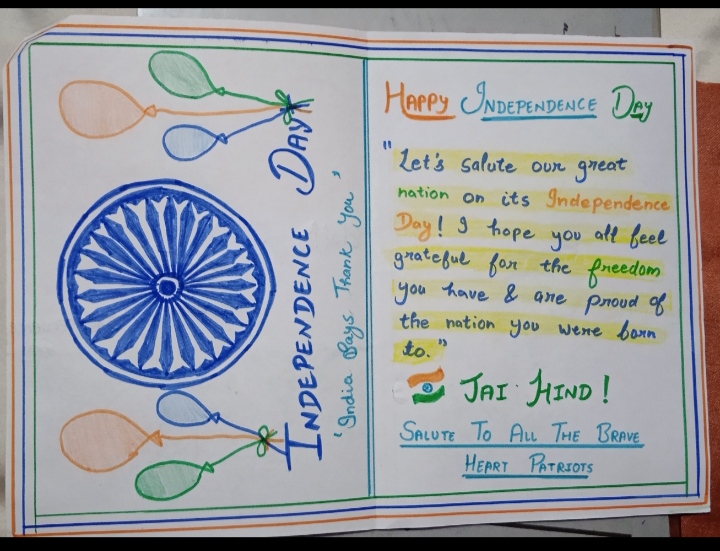 INDEPENDENCE DAY
'India Says Thank You'
HAPPY INDEPENDENCE DAY
"Let's salute our great
nation on its Independence
Day! I hope you all feel
grateful for the freedom
you have & are proud of
the nation you were born
to."
JAI HIND!
SALUTE TO ALL THE BRAVE
HEART PATRIOTS